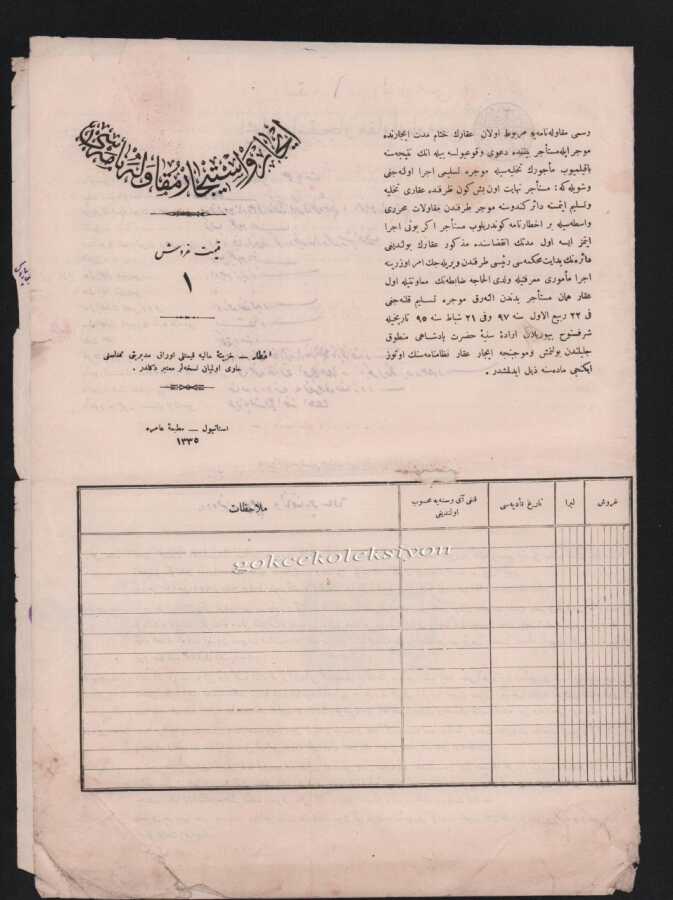 رسمی مقاوله‌نامه‌یه مربوط اولان عقارك ختام مدت ایجارنده
موجر ایله مستأجر بیننده دعوی وقوعبولسه بیله انك نتیجه‌سنه
باقیلمیوب مأجورك تخلیه‌سیله موجره تسلیمی اجرا اولنه‌جغی
وشویله که : مستأجر نهایت اون بش کون ظرفنده عقاری تخلیه
وتسلیم ایتمسنه دائر کندوسنه موجر طرفندن مقاولات محرری
واسطه‌سیله بر اخطارنامه کوندریلوب مستأجر اکر بونی اجرا
ایتمز ایسه اول مدتك انقضاسنده مذکور عقارك بولندیغی
دائره‌نك بدایت محکمه‌سی رئیسی طرفندن ویریله‌جك امر اوزرینه
اجرا مأموری معرفتیله ولدی الحاجه ضابطه‌نك معاونتیله اول
عقار همان مستأجر یدندن النه‌رق موجره تسلیم قلنه‌جغی
فی ٢٢ ربیع الاول سنه ٩٧ وفی ٢١ شباط سنه ٩٥ تاریخیله
شرفسنوح بیوریلان ارادۀ سنیۀ حضرت پادشاهی منطوق
جلیلندن بولنمش وموجبنجه ایجار عقار نظامنامه‌سنك اوتوز
ایکنجی ماده‌سنه ذیل ایدلمشدر .
ایجار واستیجار مقاوله‌نامه‌سی
قیمت غروش
١
اخطار : خزینۀ مالیه قیمتلی اوراق مدیریتی مخلصنی
حاوی اولمیان نسخه‌لر معتبر دکلدر .
استانبول — مطبعۀ عامره
١٣٣٥
غروش
لیرا
تاریخ تأدیه‌سی
قنغی آی وسنه‌یه محسوب
اولندیغی
ملاحظات
gokcekoleksiyon